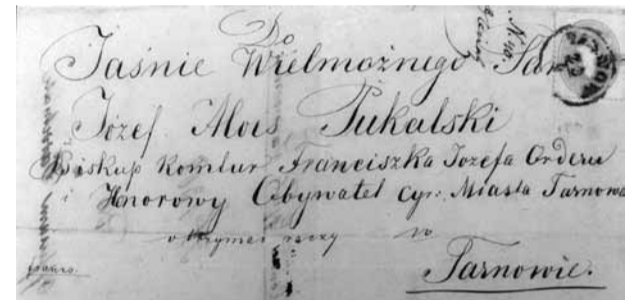 Do
Jaśnie Wielmożnego Pan
Józef Alois Pukalski
Biskup Komtur Franciszka Jozefa Orderu
i Honorowy Obywatel Cyr: Miasta Tarnowa
otrzymać raczy w
franco.
Tarnowie.